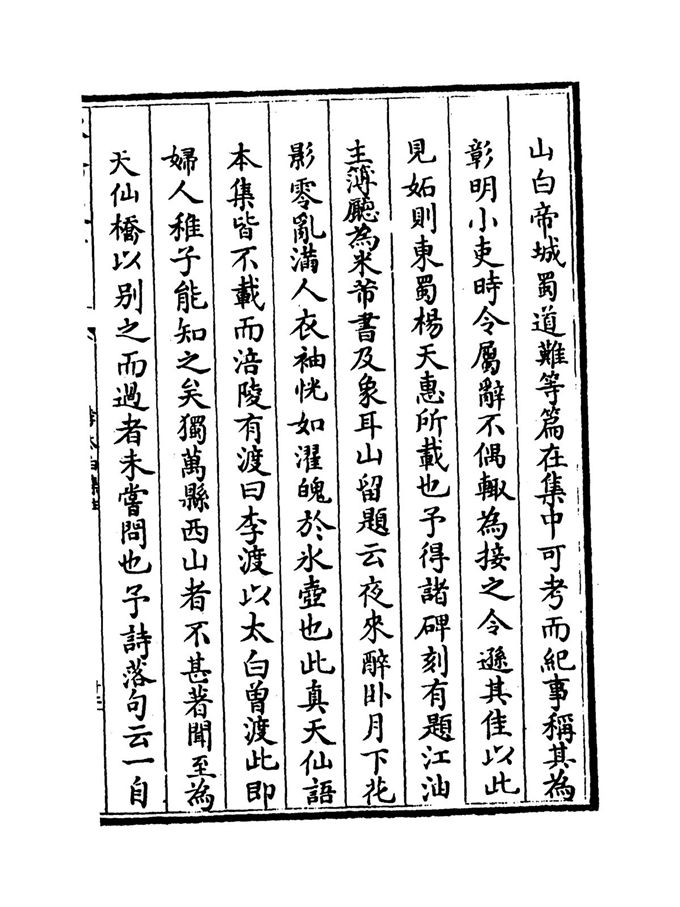 山白帝城蜀道難等篇在集中可考而紀事稱其為
彰明小吏時令屬辭不偶輙為接之令遜其佳以此
見妬則東蜀楊天惠所載也予得諸碑刻有題江油
主簿廳為米芾書及象耳山留題云夜來醉卧月下花
影零亂滿人衣袖恍如濯魄於氷壺也此真天仙語
本集皆不載而涪陵有渡曰李渡以太白曽渡此即
婦人稚子能知之矣獨萬縣西山者不甚著聞至為
天仙橋以别之而過者未嘗問也予詩落句云一自
李太白集注